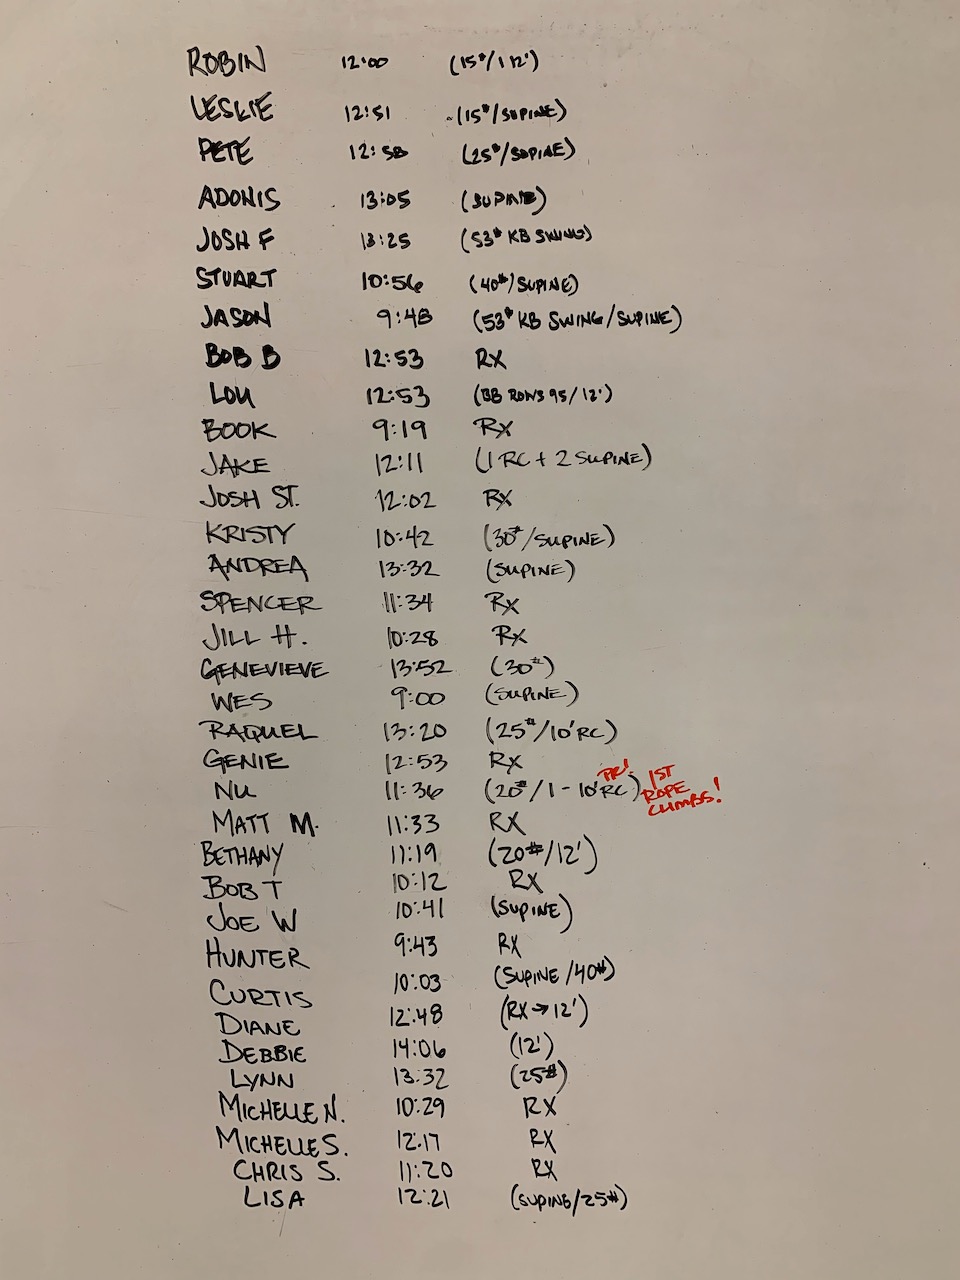 ROBIN 12:00 (15#/1 12')
LESLIE 12:51 (15#/SUPINE)
PETE 12:58 (25#/SUPINE)
ADONIS 13:05 (SUPINE)
JOSH F 13:25 (53# KB SWING)
STUART 10:56 (40#/SUPINE)
JASON 9:48 (53# KB SWING/SUPINE)
BOB B 12:53 RX
LOU 12:53 (BB ROWS 95/12')
BOOK 9:19 RX
JAKE 12:11 (1 RC + 2 SUPINE)
JOSH ST. 12:02 RX
KRISTY 10:42 (30#/SUPINE)
ANDREA 13:32 (SUPINE)
SPENCER 11:34 RX
JILL H. 10:28 RX
GENEVIEVE 13:52 (30#)
WES 9:00 (SUPINE)
RAQUEL 13:20 (25#/10' RC)
GENIE 12:53 RX
NU 11:36 (20#/1-10' RC) PR! 1ST ROPE CLIMBS!
MATT M. 11:33 RX
BETHANY 11:19 (20#/12')
BOB T 10:12 RX
JOE W 10:41 (SUPINE)
HUNTER 9:43 RX
CURTIS 10:03 (SUPINE/40#)
DIANE 12:48 (RX→12')
DEBBIE 14:06 (12')
LYNN 13:32 (25#)
MICHELLE N. 10:29 RX
MICHELLE S. 12:17 RX
CHRIS S. 11:20 RX
LISA 12:21 (SUPINE/25#)